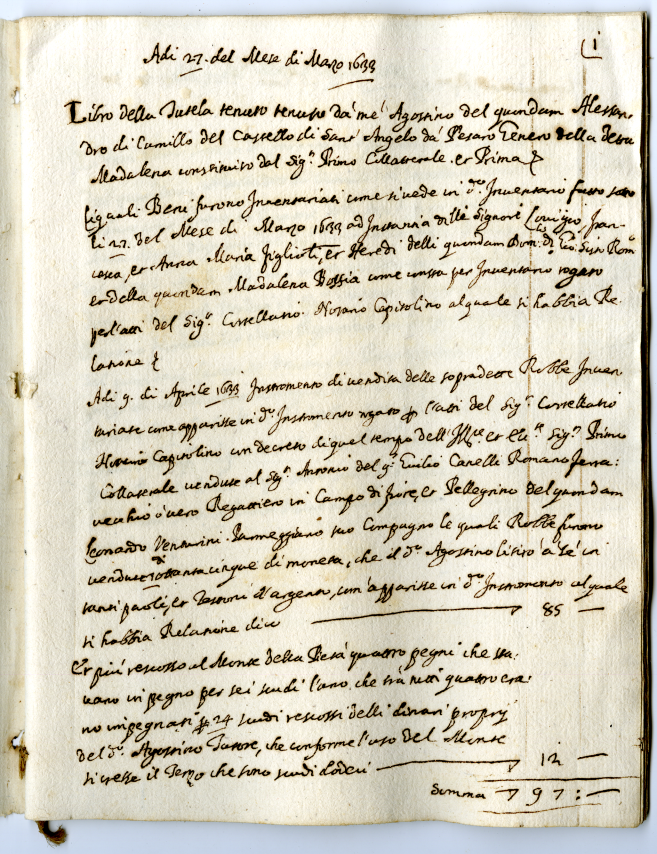 1
Adi 27. del Mese di Marzo 1633
Libro della Tutela tenuto tenuto da mè Agostino del quondam Alessan
dro di Camillo del Castello di Sant' Angelo da Pesaro Tenero della detta
Madalena constituito dal Sigr. Primo Collaterale. et Prima
Liquali Beni furono Inventariati come si vede in do. Inventario fatto sotto
li 27. del Mese di Marzo 1633 ad Instantia delli Signori Fran
cesca, et Anna Maria figlioli, et Heredi delli quondam
et della quondam Madalena Bossia come consta per Inventario rogato
per l'atti del Sigr. Cortellasio. Notario Capitolino al quale si habbia Re
latione
Adi 9. di Aprile 1633 Instromento di vendita delle sopradette Robbe Inven
tariate come apparisse in do. Instromento rogato p l'atti del Sigr. Cortellasio
Notario Capitolino con decreto di quel tempo dell' Illre. et Sigr. Primo
Collaterale vendute al Sigr. Antonio del q. Emilio Canelli Romano ferra:
vecchio ò vero Regattiero in Campo di fiore, et Pellegrino del quondam
Leonardo Venturini. Parmeggiano suo Compagno le quali Robbe furono
vendute ottanta cinque di moneta, che il do. Agostino li tirò à sé in
tanti paoli, et Testoni d'argento, com'apparisse in do. Instromento al quale
si habbia Relatione dico 85 —
Et più rescosso al Monte della Pietà quattro pegni che sta:
vano in pegno per sei scudi l'uno, che trà tutti quattro era:
no impegnati p 24 scudi rescossi delli dinari proprij
del do. Agostino Tutore, che conforme l'uso del Monte
si cresse il Terzo che sono scudi Dodeci 12 —
Summa 97: —